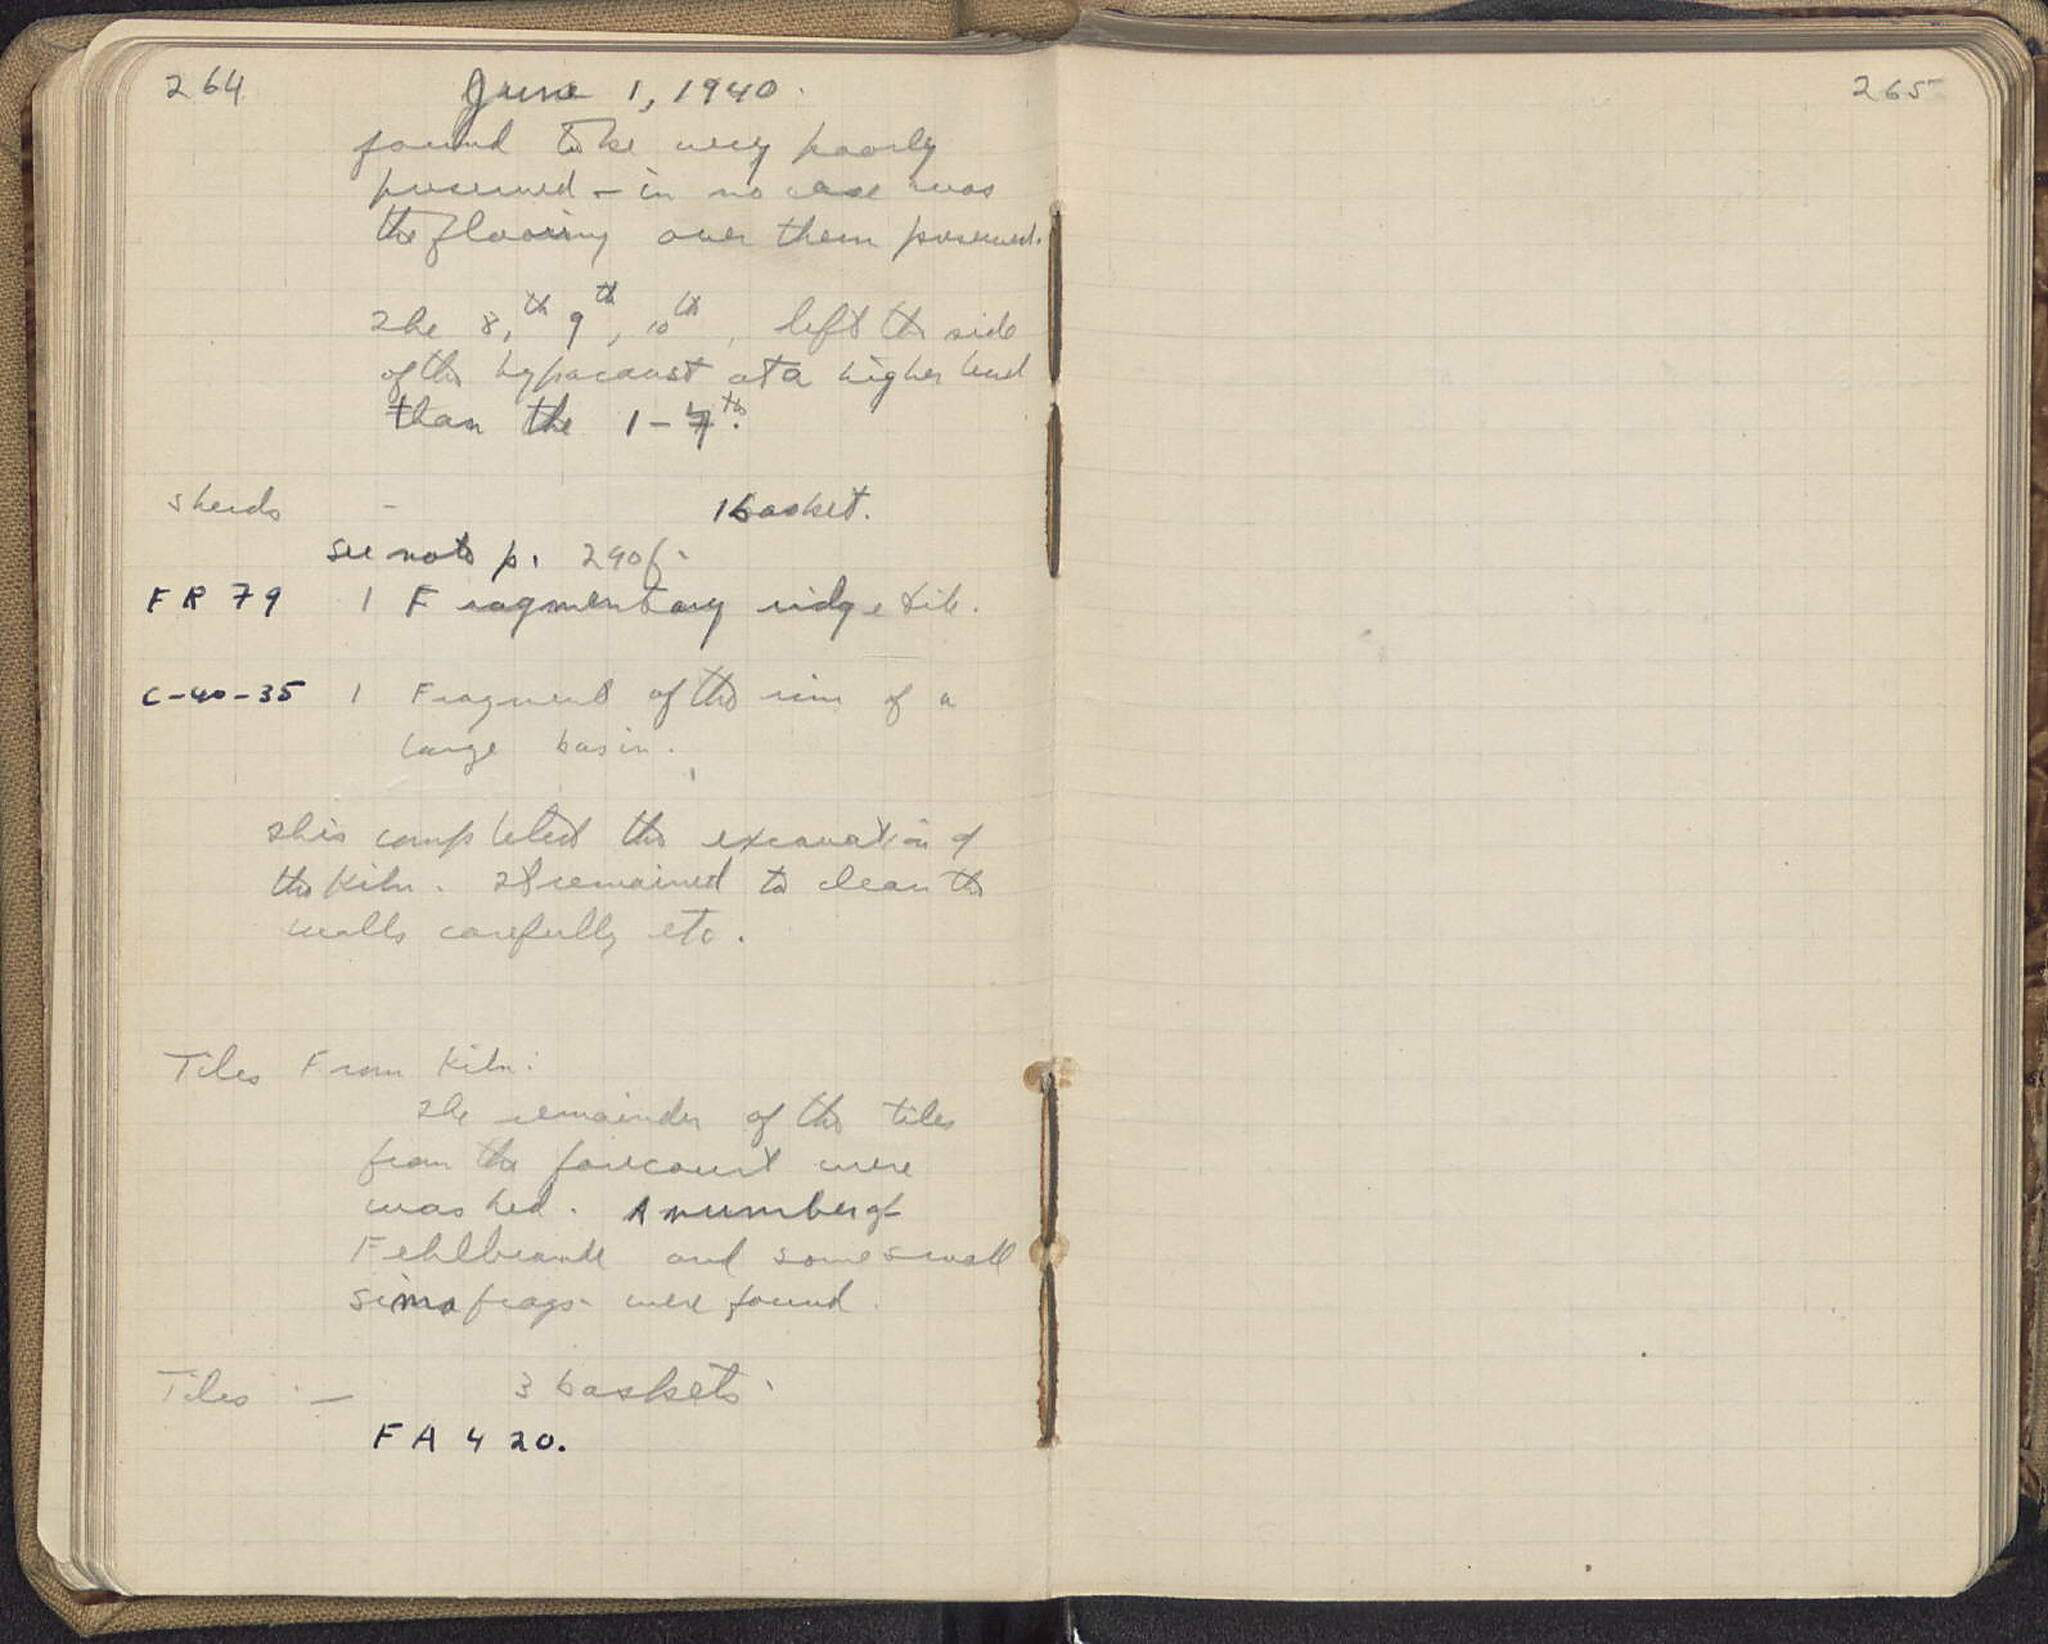 264
June 1, 1940.
found to be very poorly
preserved - in no case was
the flooring over them preserved.
The 8,th 9th, 10th, left the side
of the hypocaust at a higher level
than the 1-7th.
sherds - 1 basket.
see note p. 290f.
FR 79 1 Fragmentary ridge tile.
C-40-35 1 Fragment of the rim of a
large basin.
This completed the excavation of
the Kiln. It remained to clean the
walls carefully etc.
Tiles From Kiln:
The remainder of the tiles
from the forecourt were
washed. A number of
Fehlbrände and some small
sima frags. were found.
Tiles - 3 baskets.
FA 420.
265